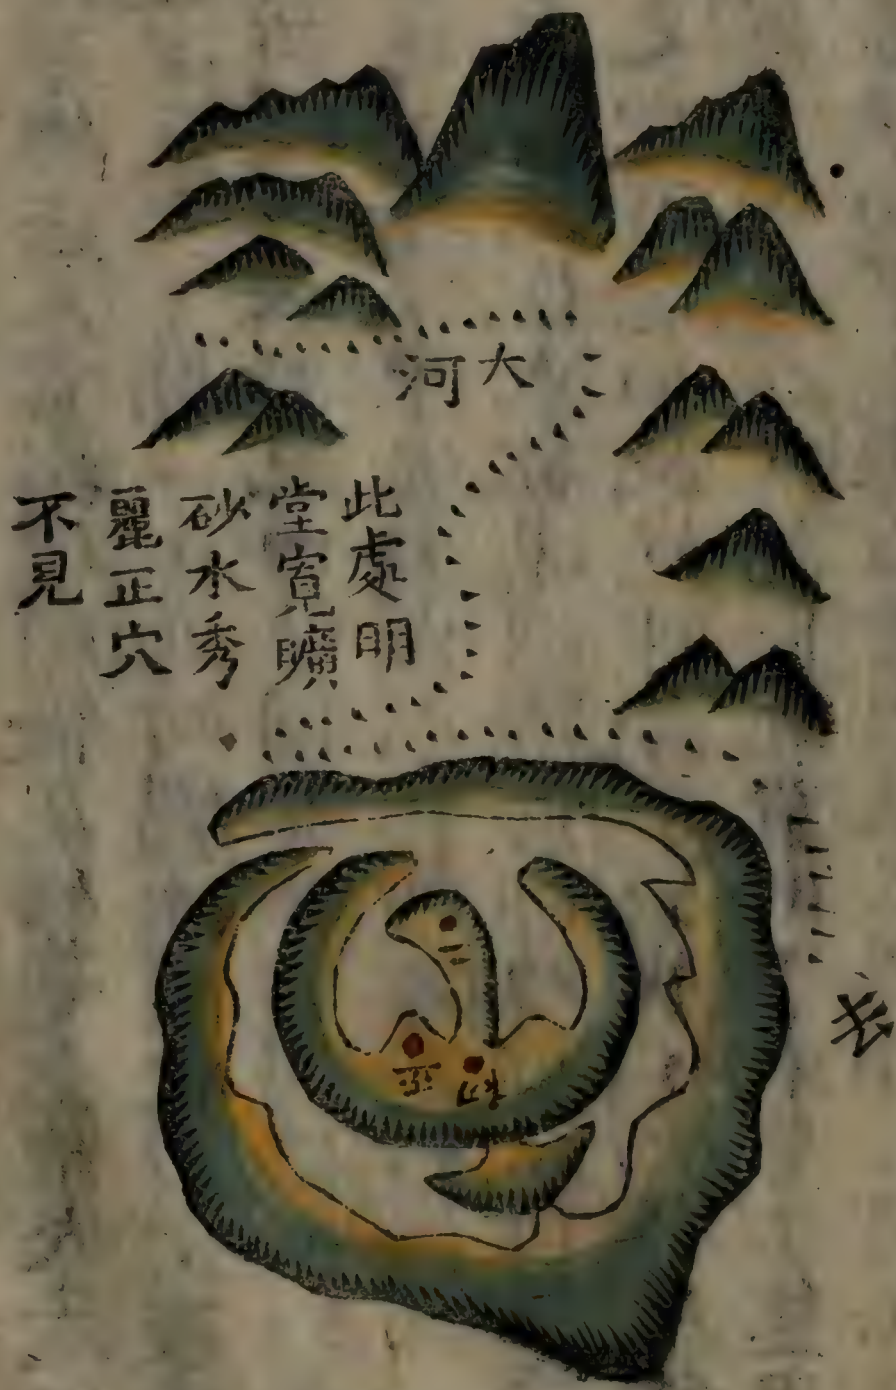 大河
此處明
堂寬曠
砂水秀
麗正穴
不見
二